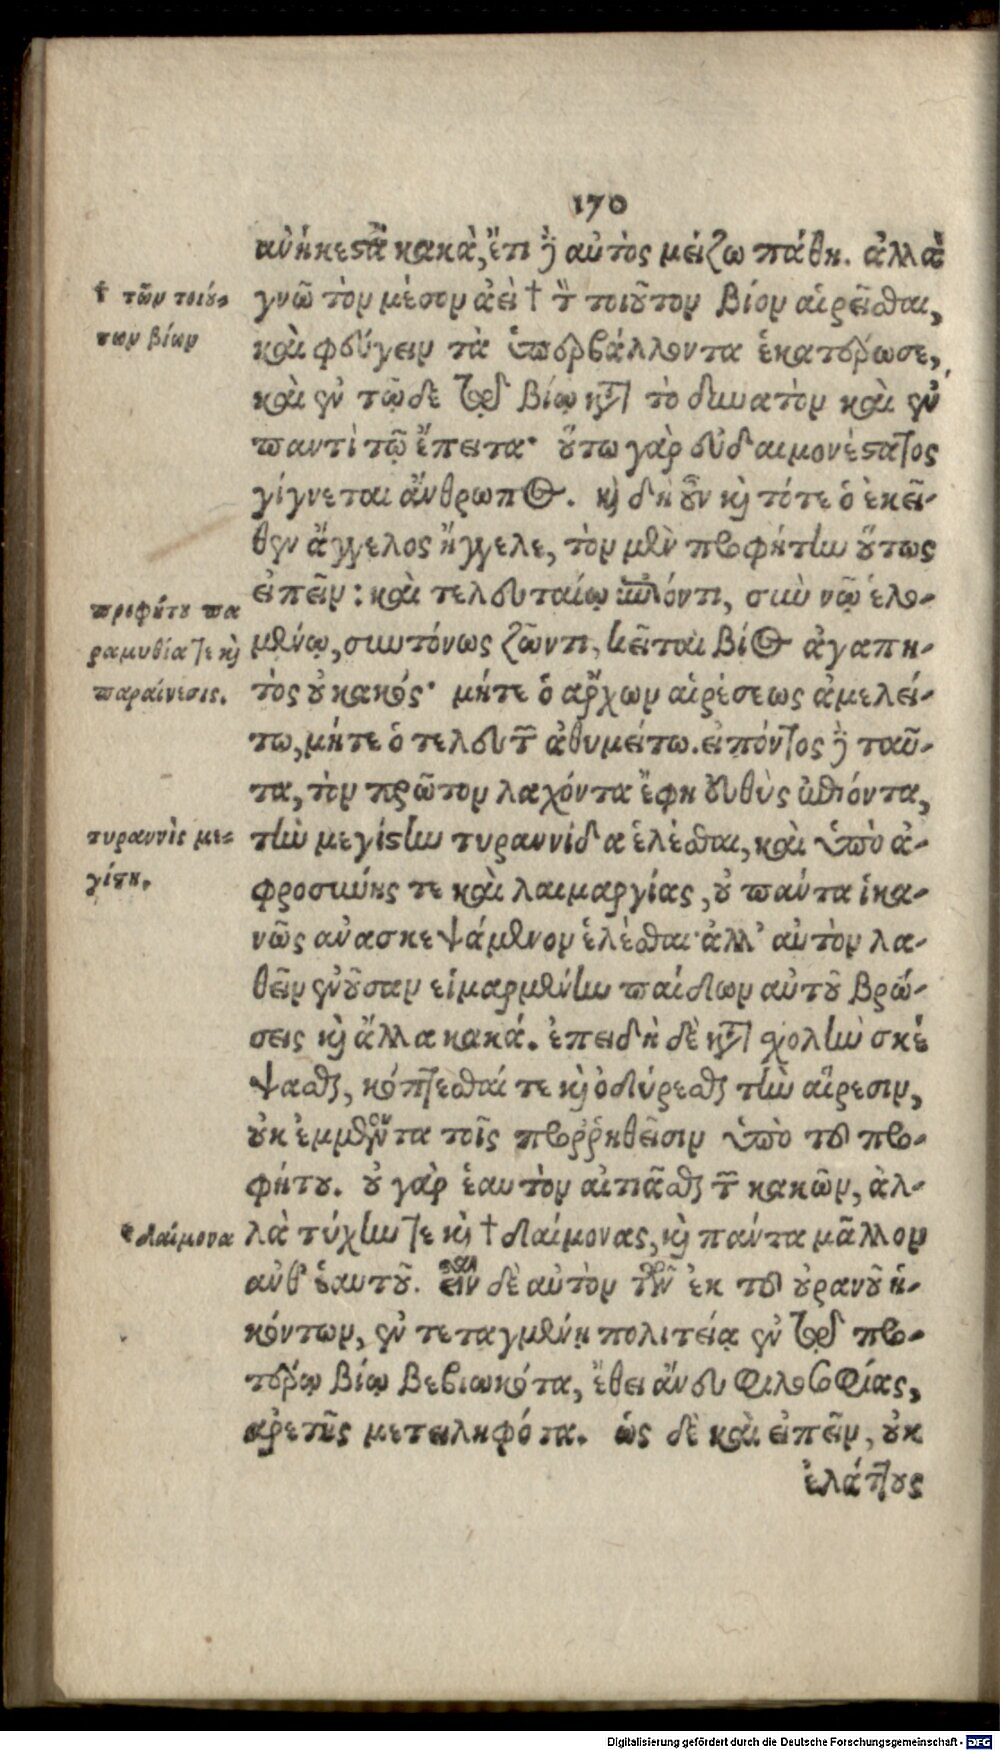 170
ανήκεστα κακὰ, ἔτι δὲ αὐτὸς μείζω πάθη. ἀλλὰ
† τῶν τοιού-
των βίων
γνῶ τὸν μέσον ἀεὶ † τ τοιοῦτον βίον αἱρεῖσθαι,
καὶ φεύγειν τὰ ὑπερβάλλοντα ἑκατέρωσε,
καὶ ἐν τῷδε τῷ βίῳ κατὰ τὸ δυνατὸν καὶ ἐν
παντὶ τῷ ἔπειτα· οὕτω γὰρ εὐδαιμονέστατος
γίγνεται ἄνθρωπος. καὶ δὴ οὖν καὶ τότε ὁ ἐκεῖ-
θεν ἄγγελος ἤγγελε, τὸν μὲν προφήτην οὕτως
εἰπεῖν: καὶ τελευταίῳ ἐπιόντι, σὺν νῷ ἑλο-
προφήτου πα
ραμυθία τε καὶ
παραίνεσις.
μένῳ, συντόνως ζῶντι, κεῖται βίος ἀγαπη-
τὸς οὐ κακός· μήτε ὁ ἄρχων αἱρέσεως ἀμελεί-
τω, μήτε ὁ τελευτῶν ἀθυμείτω. εἰπόντος δὲ ταῦ-
τα, τὸν πρῶτον λαχόντα ἔφη εὐθὺς ἐπιόντα,
τυραννὶς με-
γίστη.
τὴν μεγίστην τυραννίδα ἑλέσθαι, καὶ ὑπὸ ἀ-
φροσύνης τε καὶ λαιμαργίας, οὐ πάντα ἱκα-
νῶς ἀνασκεψάμενον ἑλέσθαι· ἀλλ' αὐτὸν λα-
θεῖν ἐνοῦσαν εἱμαρμένην παίδων αὐτοῦ βρώ-
σεις καὶ ἄλλα κακά. ἐπειδὴ δὲ κατὰ σχολὴν σκέ
ψασθαι, κόπτεσθαί τε καὶ ὀδύρεσθαι τὴν αἵρεσιν,
οὐκ ἐμμένοντα τοῖς προῤῥηθεῖσιν ὑπὸ τοῦ προ-
φήτου. οὐ γὰρ ἑαυτὸν αἰτιᾶσθαι τῶν κακῶν, ἀλ-
* δαίμονα
λὰ τύχην τε καὶ † δαίμονας, καὶ πάντα μᾶλλον
ἀνθ' ἑαυτοῦ. εἶναι δὲ αὐτὸν τῶν ἐκ τοῦ οὐρανοῦ ἡ-
κόντων, ἐν τεταγμένῃ πολιτείᾳ ἐν τῷ προ-
τέρῳ βίῳ βεβιωκότα, ἔθει ἄνευ φιλοσοφίας,
ἀρετῆς μετειληφότα. ὡς δὲ καὶ εἰπεῖν, οὐκ
ἐλάττους
Digitalisierung gefördert durch die Deutsche Forschungsgemeinschaft - DFG